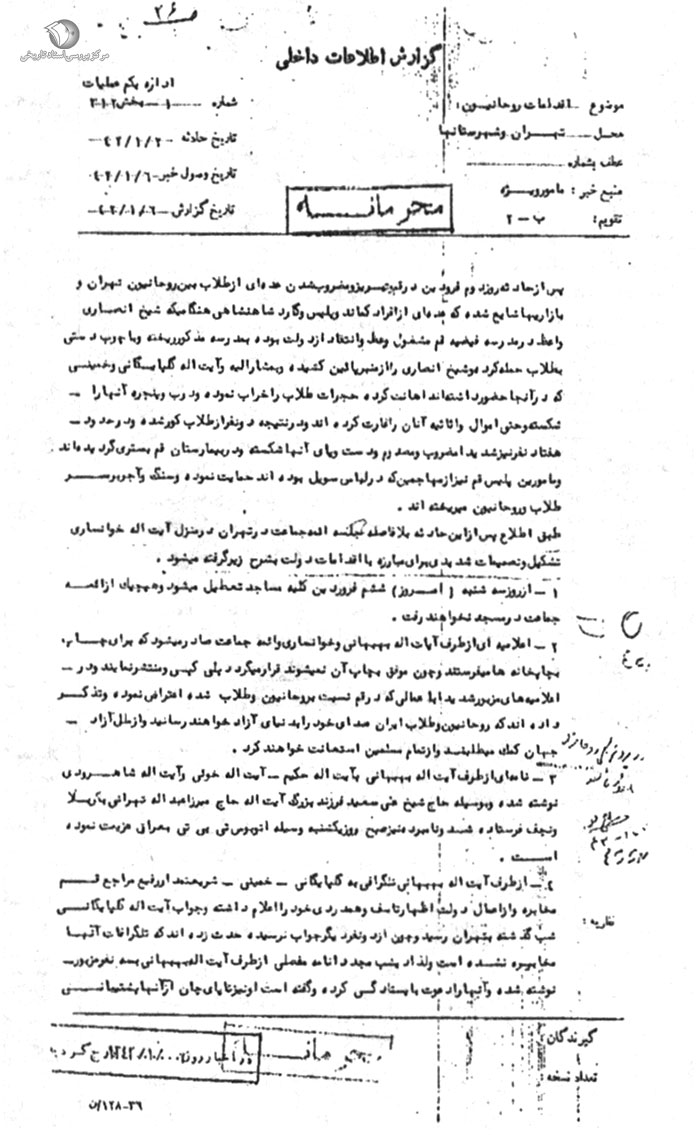 ۲۶
مرکز بررسی اسناد تاریخی
گزارش اطلاعات داخلی
اداره یکم عملیات
شماره ــ ۱ــ بخش ۳۱۲
موضوع ــ اقدامات روحانیون :
محل ــ تهران وشهرستانها
تاریخ حادثه ــ ۴۲/۱/۲
عطف بشماره
تاریخ وصول خبر ــ ۴۲/۱/۶
منبع خبر : مامورویژه
تاریخ گزارش ــ ۴۲/۰۱/۰۶
تقویم : ب ــ ۲
محرمانه
پس ازحادثه روزدوم فروردین درقم وتبریزومضروب شدن عده ای ازطلاب بین روحانیون تهران و
بازاریها شایع شده که عده ای ازافراد کماندو پلیس وگارد شاهنشاهی هنگامیکه شیخ انصاری
واعظ درمدرسه فیضیه قم مشغول وعظ وانتقاد ازدولت بوده بمدرسه مذکورریخته وباچوب دستی
بطلاب حمله کرده وشیخ انصاری راازمنبرپائین کشیده وبمشارالیه وآیت اله گلپایگانی وخمینی
که درآنجا حضورداشته اند اهانت کرده حجرات طلاب راخراب نموده ودرب وپنجره آنهارا ــ
شکسته وحتی اموال واثاثیه آنان راغارت کرده اند ودرنتیجه دونفرازطلاب کورشده ودرحدود ــ
هفتاد نفرنیزشدیدا مضروب ومصدوم ودست وپای آنها شکسته ودربیمارستان قم بستری گردیده اند
ومامورین پلیس قم نیزازمهاجمین که درلباس سویل بوده اند حمایت نموده وسنگ وآجربرسر
طلاب وروحانیون میریخته اند .
طبق اطلاع پس ازاین حادثه بلافاصله جلسه ائمه جماعت درتهران درمنزل آیت اله خوانساری
تشکیل وتصمیمات شدیدی برای مبارزه با اقدامات دولت بشرح زیرگرفته میشود .
۱ ــ ازروزسه شنبه ( امــروز ) ششم فروردین کلیه مساجد تعطیل میشود وهیچیک ازائمه
جماعت درمسجد نخواهند رفت .
۲ ــ اعلامیه ای ازطرف آیات اله بهبهانی وخوانساری وائمه جماعت صادرمیشود که برای چاپ
بچاپخانه ها میفرستند وچون موفق بچاپ آن نمیشوند قرارمیگردد پلی کپی ومنتشرنمایند ودر ــ
اعلامیه های مزبورشدیدا به اعمالی که درقم نسبت بروحانیون وطلاب شده اعتراض نموده وتذکر
داده اند که روحانیون وطلاب ایران صدای خود رابدنیای آزاد خواهند رسانید وازملل آزاد ــ
جهان کمک میطلبند وازتمام مسلمین استعانت خواهند کرد .
۳ ــ نامه ای ازطرف آیت اله بهبهانی بآیت اله حکیم ــ آیت اله خوئی وآیت اله شاهرودی
نوشته شده وبوسیله حاج شیخ علی سعید فرزند بزرگ آیت اله حاج میرزاعبداله تهرانی بکربلا
ونجف فرستاده شد ونامبرده نیزصبح روزیکشنبه وسیله اتوبوس تی بی تی بعراق عزیمت نموده
است .
۴ ــ ازطرف آیت اله بهبهانی تلگرافی به گلپایگانی ــ خمینی ــ شریعتمداررفیع مراجع قــم
مخابره وازاعمال دولت اظهارتاسف وهمدردی خودرااعلام داشته وجواب آیت اله گلپایگانی
شب گذشته بتهران رسید وچون ازدونفردیگرجواب نرسیده حدث زده اند که تلگرافات آنها
مخابره نشده است ولذا دیشب مجددا نامه مفصلی ازطرف آیت اله بهبهانی بسه نفرمزبور ــ
نوشته شده وآنهارادعوت باستادگی کرده وگفته است اونیزتاپای جان ازآنها پشتیبانی
نظریه :
گیرندگان :
تعداد نسخه :
محرمانه
۱۲۸-۳۶/ن